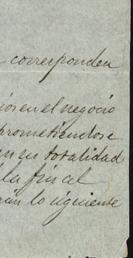 corresponden
ios en el negocio
prometiéndose
en su totalidad
la fin el
rán lo siguiente